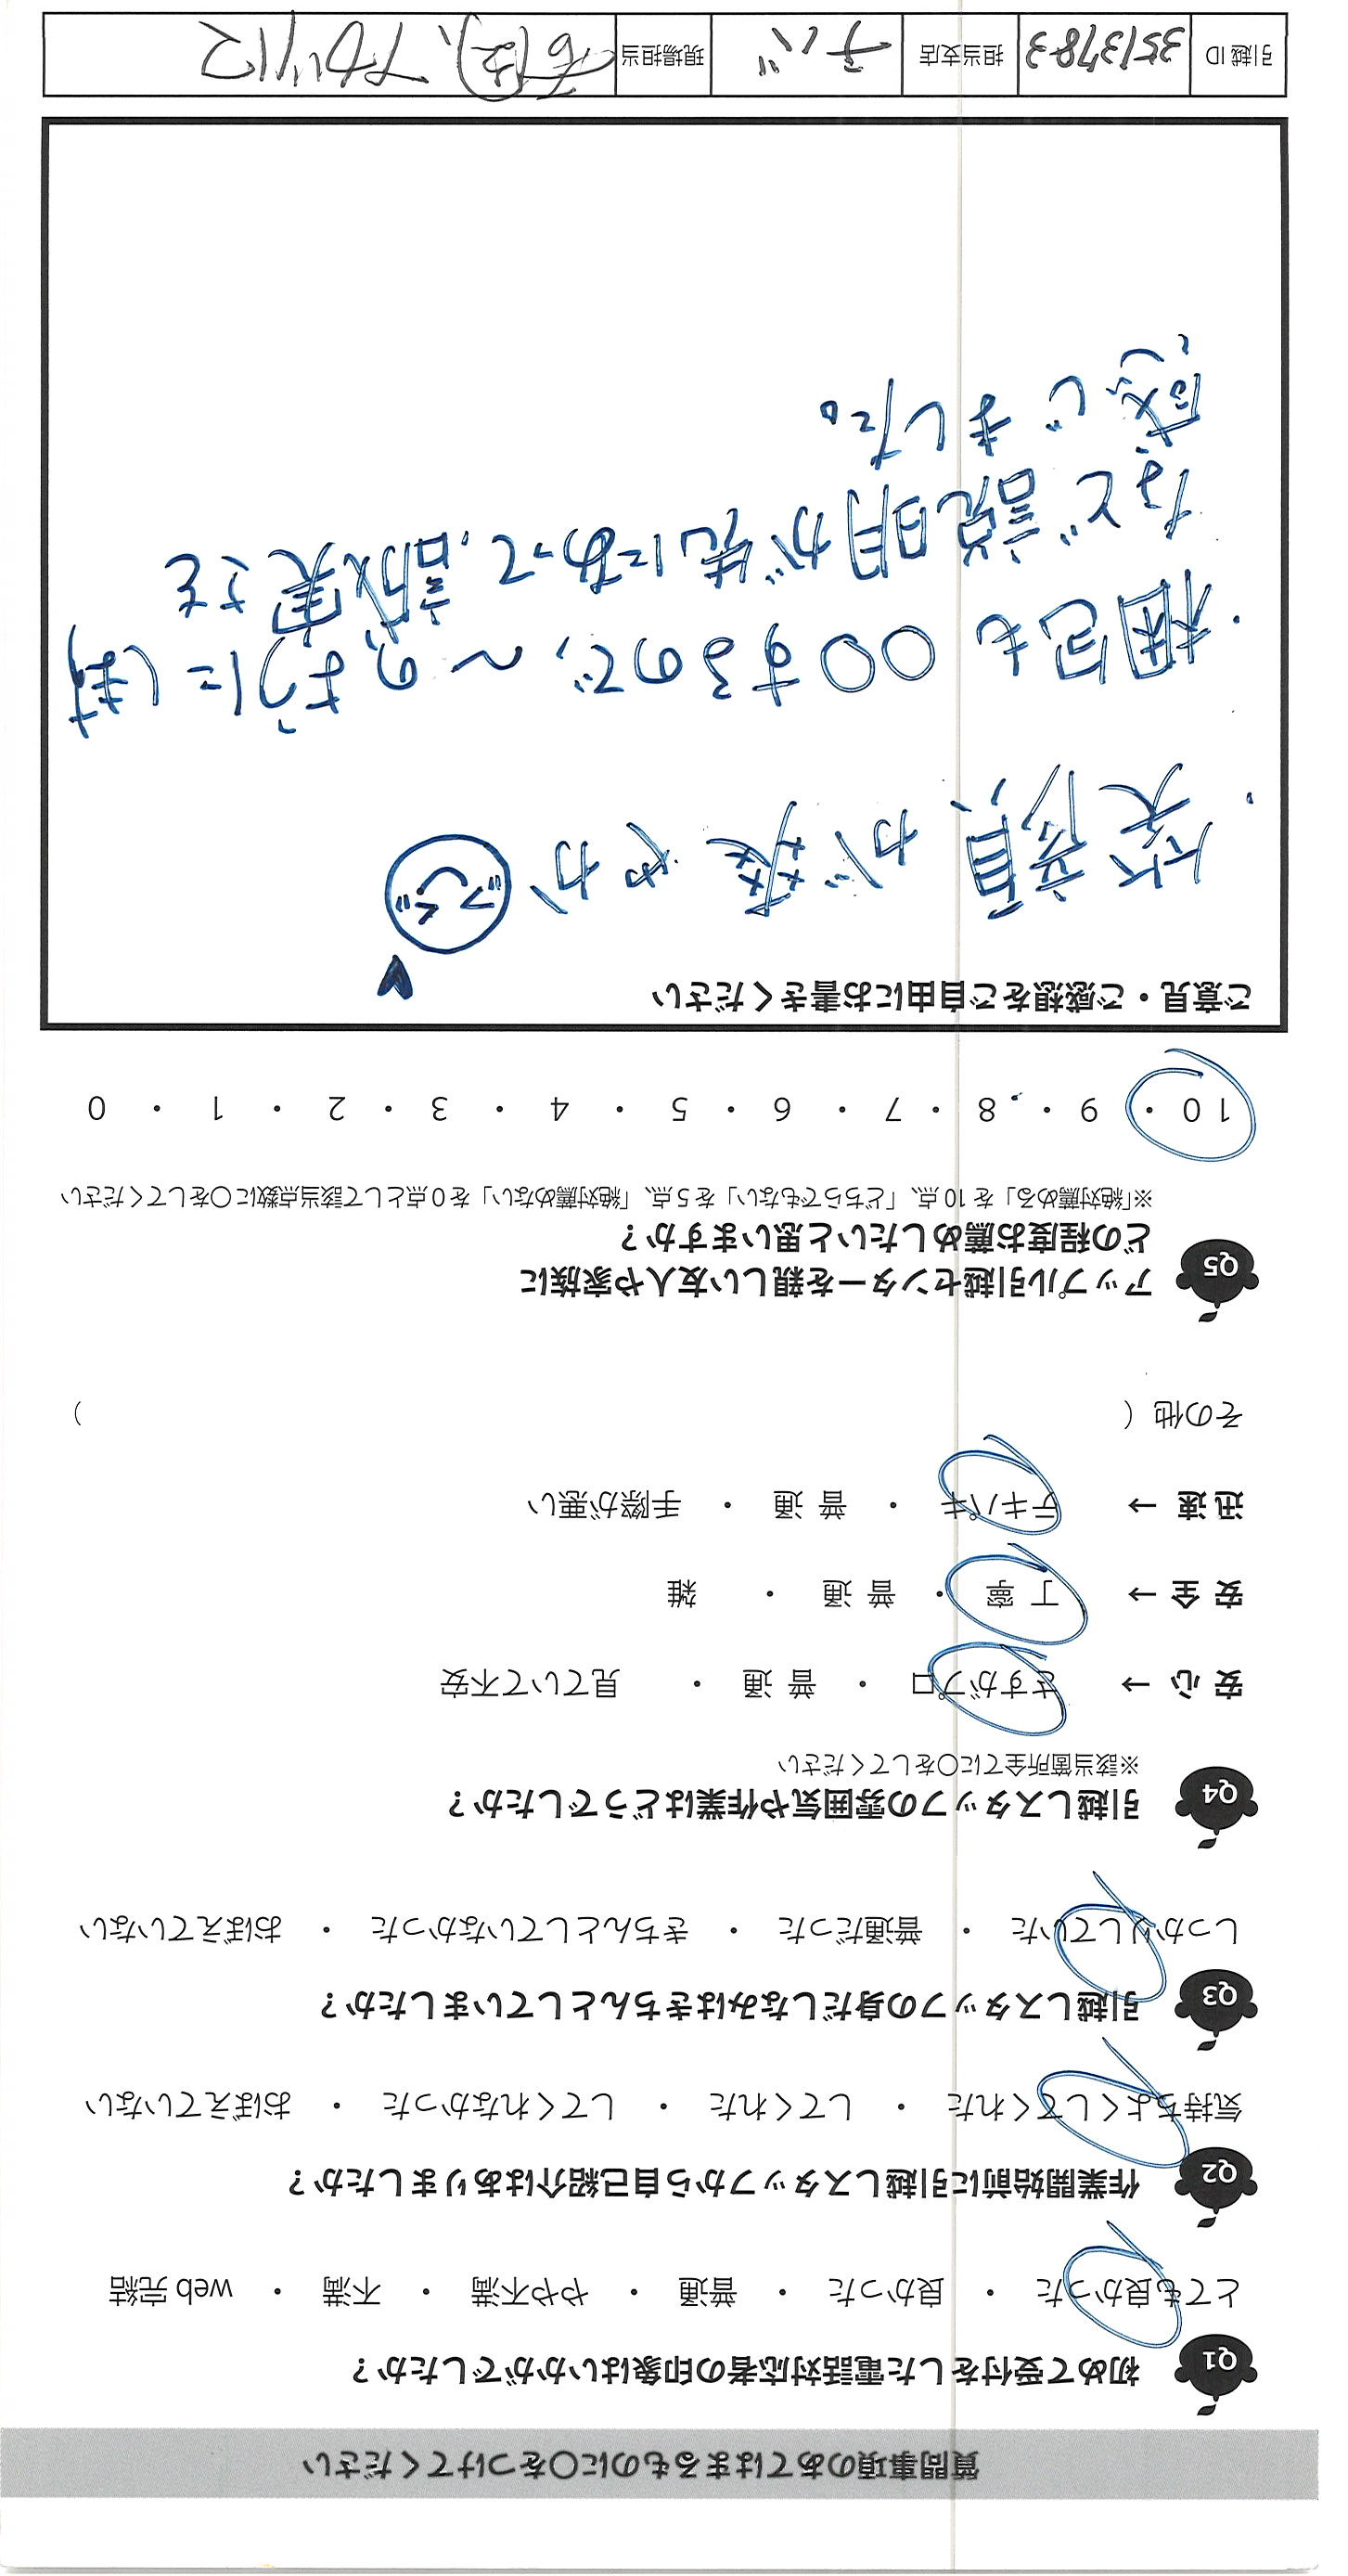 質問事項のあてはまるものに〇をつけてください
Q1 初めて受付をした電話対応者の印象はいかがでしたか？
とても良かった ・ 良かった ・ 普通 ・ やや不満 ・ 不満 ・ web 完結
Q2 作業開始前に引越しスタッフから自己紹介はありましたか？
気持ちよくしてくれた ・ してくれた ・ してくれなかった ・ おぼえていない
Q3 引越しスタッフの身だしなみはきちんとしていましたか？
しっかりしていた ・ 普通だった ・ きちんとしていなかった ・ おぼえていない
Q4 引越しスタッフの雰囲気や作業はどうでしたか？
※該当箇所全てに〇をしてください
安 心 → さすがプロ ・ 普 通 ・ 見ていて不安
安 全 → 丁 寧 ・ 普 通 ・ 雑
迅 速 → テキパキ ・ 普 通 ・ 手際が悪い
その他（ ）
Q5 アップル引越センターを親しい友人や家族に
どの程度お薦めしたいと思いますか？
※「絶対薦める」を 10 点、「どちらでもない」を 5 点、「絶対薦めない」を 0 点として該当点数に〇をしてください
10 ・ 9 ・ 8 ・ 7 ・ 6 ・ 5 ・ 4 ・ 3 ・ 2 ・ 1 ・ 0
ご意見・ご感想をご自由にお書きください
・笑顔が爽やか
・梱包も〇〇するので、〜のように（ます）
など説明が先にあって、誠実さを
感じました。
引越 ID 3513783 担当支店 チバ 現場担当